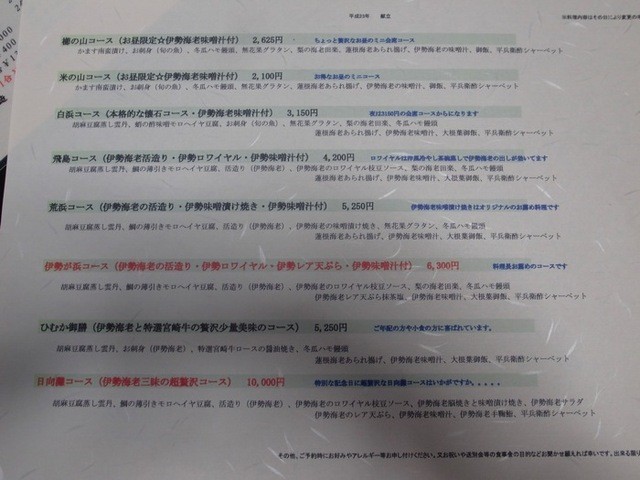 平成25年 献立
※料理内容はその日により変更の
櫛の山コース(お昼限定☆伊勢海老味噌汁付) 2,625円 ちょっと贅沢なお昼のミニ会席コース
かます南蛮漬け、お刺身(旬の魚)、冬瓜ハモ饅頭、無花果グラタン、梨の海老田楽、蓮根海老あられ揚げ、伊勢海老味噌汁、御飯、平兵衛酢シャーベット
米の山コース(お昼限定☆伊勢海老味噌汁付) 2,100円 お得なお昼のミニコース
かます南蛮漬け、お刺身(旬の魚)、冬瓜ハモ饅頭、無花果グラタン、蓮根海老あられ揚げ、伊勢海老味噌汁、御飯、平兵衛酢シャーベット
白浜コース(本格的な懐石コース・伊勢海老味噌汁付) 3,150円 夜は3150円の会席コースからになります
胡麻豆腐蒸し雲丹、鮹の酢味噌モロヘイヤ豆腐、お刺身(旬の魚)、無花果グラタン、梨の海老田楽、冬瓜ハモ饅頭
蓮根海老あられ揚げ、伊勢海老味噌汁、大根葉御飯、平兵衛酢シャーベット
飛島コース(伊勢海老活造り・伊勢ロワイヤル・伊勢味噌汁付) 4,200円 ロワイヤルは洋風冷やし茶碗蒸しで伊勢海老の出しが効いてます
胡麻豆腐蒸し雲丹、鯛の薄引きモロヘイヤ豆腐、活造り(伊勢海老)、伊勢海老のロワイヤル枝豆ソース、梨の海老田楽、冬瓜ハモ饅頭
蓮根海老あられ揚げ、伊勢海老味噌汁、大根葉御飯、平兵衛酢シャーベット
荒浜コース(伊勢海老の活造り・伊勢味噌漬け焼き・伊勢味噌汁付) 5,250円 伊勢海老味噌漬け焼きはオリジナルのお薦め料理です
胡麻豆腐蒸し雲丹、鯛の薄引きモロヘイヤ豆腐、活造り(伊勢海老)、伊勢海老の味噌漬け焼き、無花果グラタン、冬瓜ハモ饅頭
蓮根海老あられ揚げ、伊勢海老味噌汁、大根葉御飯、平兵衛酢シャーベット
伊勢が浜コース(伊勢海老の活造り・伊勢ロワイヤル・伊勢レア天ぷら・伊勢味噌汁付) 6,300円 料理長お薦めのコースです
胡麻豆腐蒸し雲丹、鯛の薄引きモロヘイヤ豆腐、活造り(伊勢海老)、伊勢海老のロワイヤル枝豆ソース、梨の海老田楽、冬瓜ハモ饅頭
伊勢海老レア天ぷら抹茶塩、伊勢海老味噌汁、大根葉御飯、平兵衛酢シャーベット
ひむか御膳(伊勢海老と特選宮崎牛の贅沢少量美味のコース) 5,250円 ご年配の方や小食の方に喜ばれています。
胡麻豆腐蒸し雲丹、お刺身(伊勢海老)、特選宮崎牛ロースの醤油焼き、冬瓜ハモ饅頭
蓮根海老あられ揚げ、伊勢海老味噌汁、大根葉御飯、平兵衛酢シャーベット
日向灘コース(伊勢海老三昧の超贅沢コース) 10,000円 特別な記念日に超贅沢な日向灘コースはいかがですか。。。。。
胡麻豆腐蒸し雲丹、鯛の薄引きモロヘイヤ豆腐、活造り(伊勢海老)、伊勢海老のロワイヤル枝豆ソース、伊勢海老脳焼きと味噌漬け焼き、伊勢海老サラダ
伊勢海老のレア天ぷら、伊勢海老味噌汁、伊勢海老手鞠鮨、平兵衛酢シャーベット
その他、ご予約時にお好みやアレルギー等お申し付けください。又お祝いや送別会等の食事会の目的などお聞かせ願えれば幸いです。出来る限り